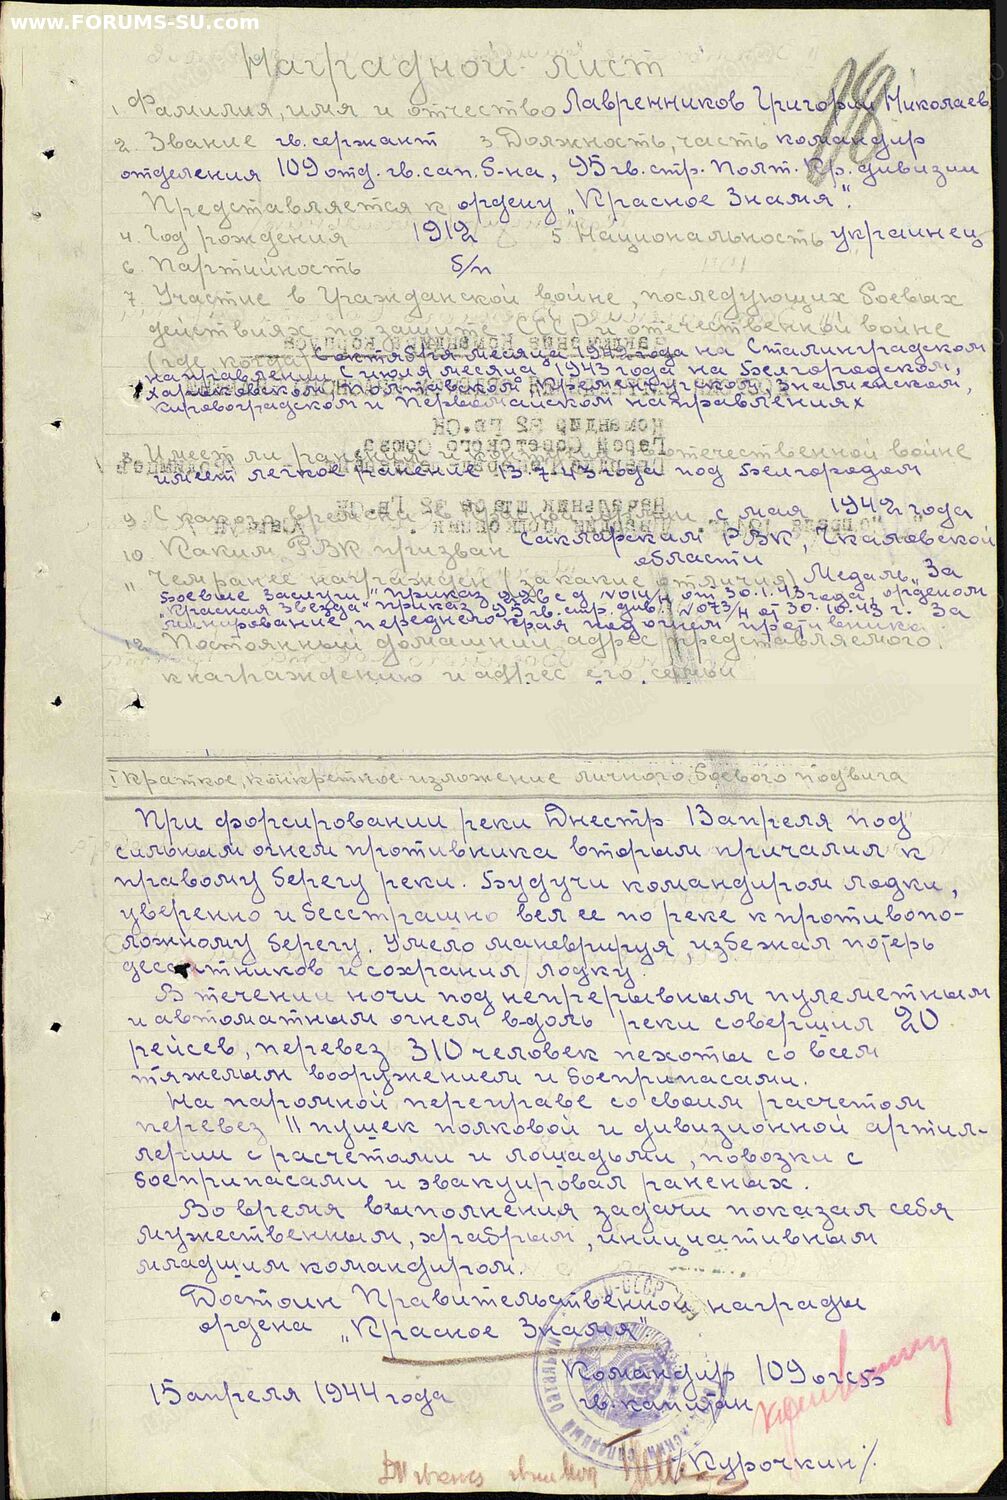 www.FORUMS-SU.com
Наградной лист
1. Фамилия, имя и отчество Лавренников Григорий Николаев.
2. Звание гв. сержант 3 Должность, часть командир
отделения 109 отд. гв. сап. б-на, 95 гв. стр. Полт. Кр. дивизии
Представляется к ордену „Красное Знамя".
4. Год рождения 1912 5 Национальность украинец
6. Партийность б/п
7. Участие в Гражданской войне, последующих боевых
действиях по защите СССР и отечественной войне
(где, когда) с октября месяца 1942 года на Сталинградском
направлении С июля месяца 1943 года на Белгородском,
Харьковском, Полтавском, Кременчугском, Знаменском,
Кировоградском и Первомайском направлениях
8. Имеет ли ранения и контузии в отечественной войне
имеет легкое ранение 13.7.43 года под Белгородом
9. С какого времени в Красной Армии с мая 1942 года
10. Каким РВК призван Сакмарским РВК, Чкаловской
области
11 Чем ранее награжден (за какие отличия) Медаль „За
боевые заслуги" приказ № 014/н от 30.1.43 года, орденом
"Красная Звезда" приказ 95 гв. стр. див. № 073/н от 30.10.43 г. За
минирование переднего края под огнем противника.
12. Постоянный домашний адрес представляемого
к награждению и адрес его семьи
I Краткое, конкретное изложение личного боевого подвига
При форсировании реки Днестр 13 апреля под
сильным огнем противника вторым причалил к
правому берегу реки. Будучи командиром лодки,
уверенно и бесстрашно вел ее по реке к противопо-
ложному берегу. Умело маневрируя, избежал потерь
десантников и сохранил лодку.
В течении ночи под непрерывным пулеметным
и автоматным огнем в-доль реки совершил 20
рейсев, перевез 310 человек пехоты со всем
тяжелым вооружением и боеприпасами.
На паромной переправе со своим расчетом
перевез 11 пушек полковой и дивизионной артил-
лерии с расчетами и лошадьми, повозки с
боеприпасами и эвакуировал раненых.
Во время выполнения задачи показал себя
мужественным, храбрым, инициативным
младшим командиром.
Достоин Правительственной награды
ордена „Красное Знамя".
Командир 109 огсб
15 апреля 1944 года гв. капитан
/Курочкин/